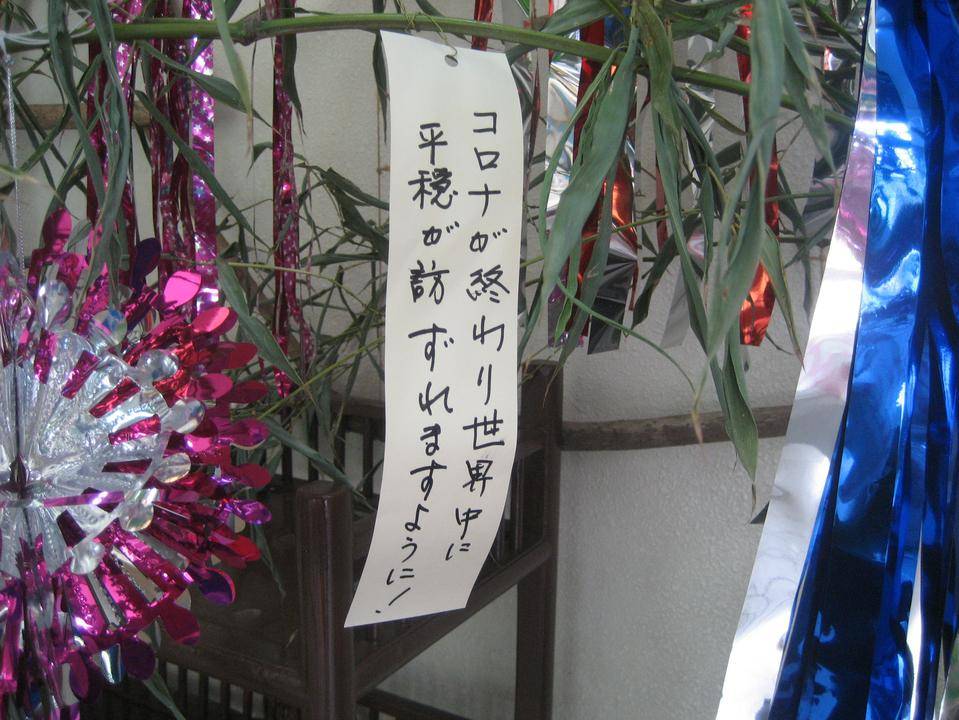 コロナが終わり世界中に
平穏が訪ずれますように!